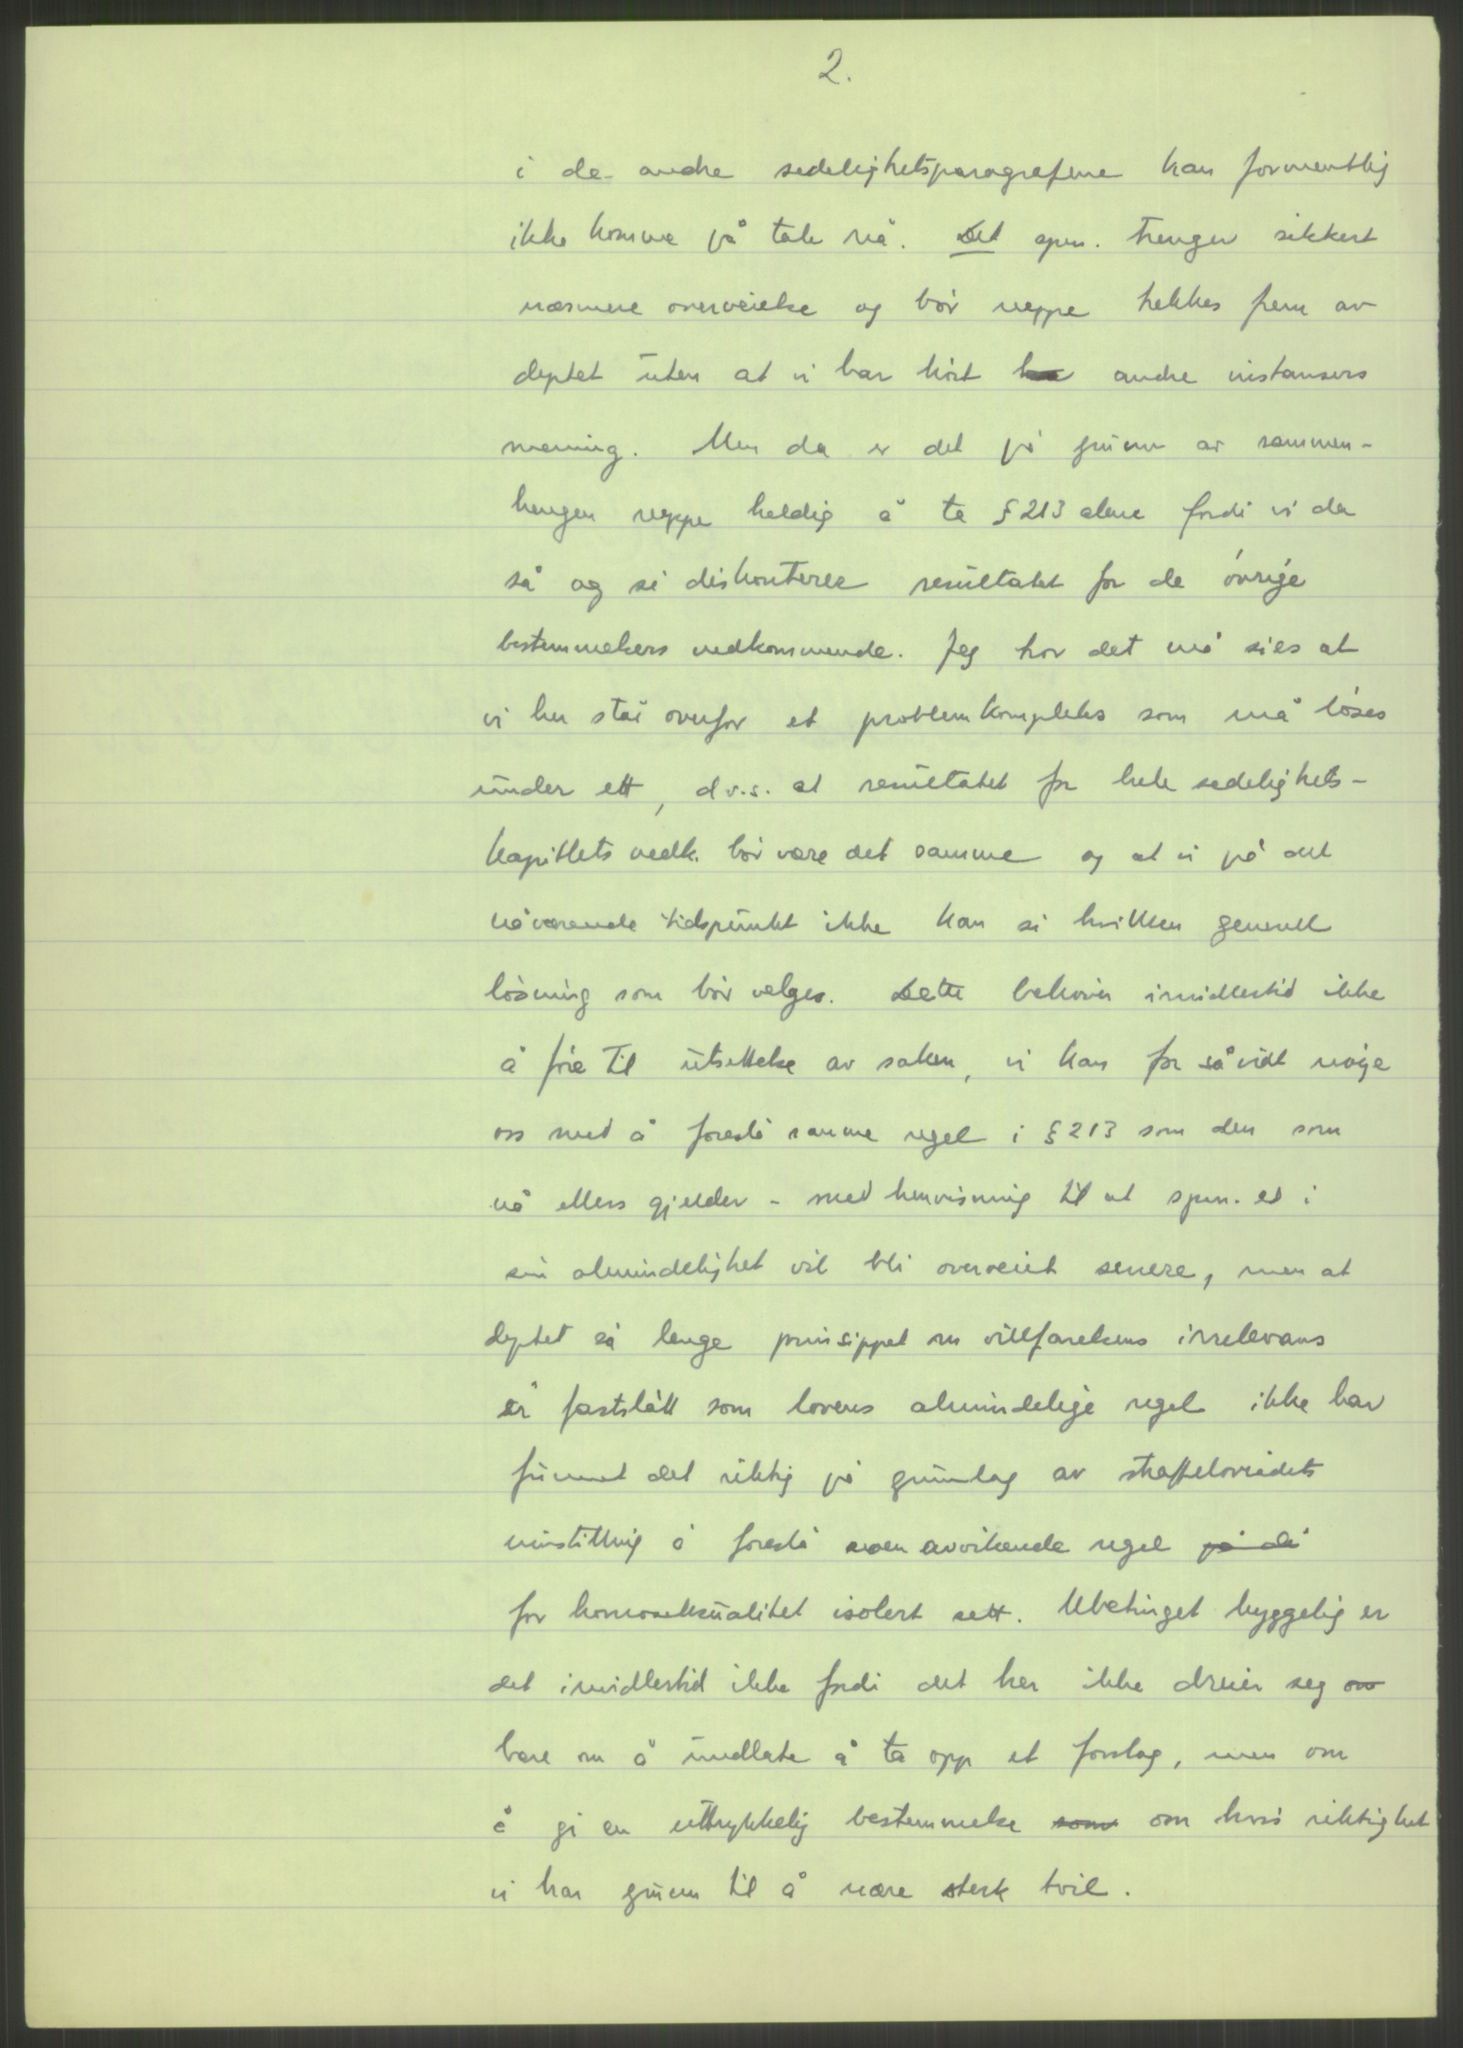 2.
i de andre sedelighetsparagrafene kan formentlig
ikke komme på tale nå. Det spm. trenger sikkert
nærmere overveielse og bör neppe trekkes frem av
deptet uten at vi har hört andre instansers
mening. Men da er det på grunn av sammen-
hengen neppe heldig å ta § 213 alene fordi vi da
så og si diskonterer resultatet for de övrige
bestemmelsers vedkommende. Jeg tror det må sies at
vi her står overfor et problemkompleks som må löses
under ett, d.v.s. at resultatet for hele sedelighets-
kapitlets vedk. bör være det samme og at vi på det
nåværende tidspunkt ikke kan si hvilken generell
lösning som bör velges. Dette behöver imidlertid ikke
å före til utsettelse av saken, vi kan for så vidt nöye
oss med å foreslå samme regel i § 213 som den som
nå ellers gjelder - med henvisning til at spm. et i
sin almindelighet vil bli overveiet senere, men at
deptet så lenge prinsippet om villfarelsens irrelevans
er fastslått som lovens almindelige regel ikke har
funnet det riktig på grunnlag av straffelovrådets
innstilling å foreslå noen avvikende regel på di
for homoseksualitet isolert sett. Ubetinget hyggelig er
det imidlertid ikke fordi det her ikke dreier seg om
bare om å unnlate å ta opp et forslag, men om
å gi en uttrykkelig bestemmelse som om hvis riktighet
vi har grunn til å nære sterk tvil.